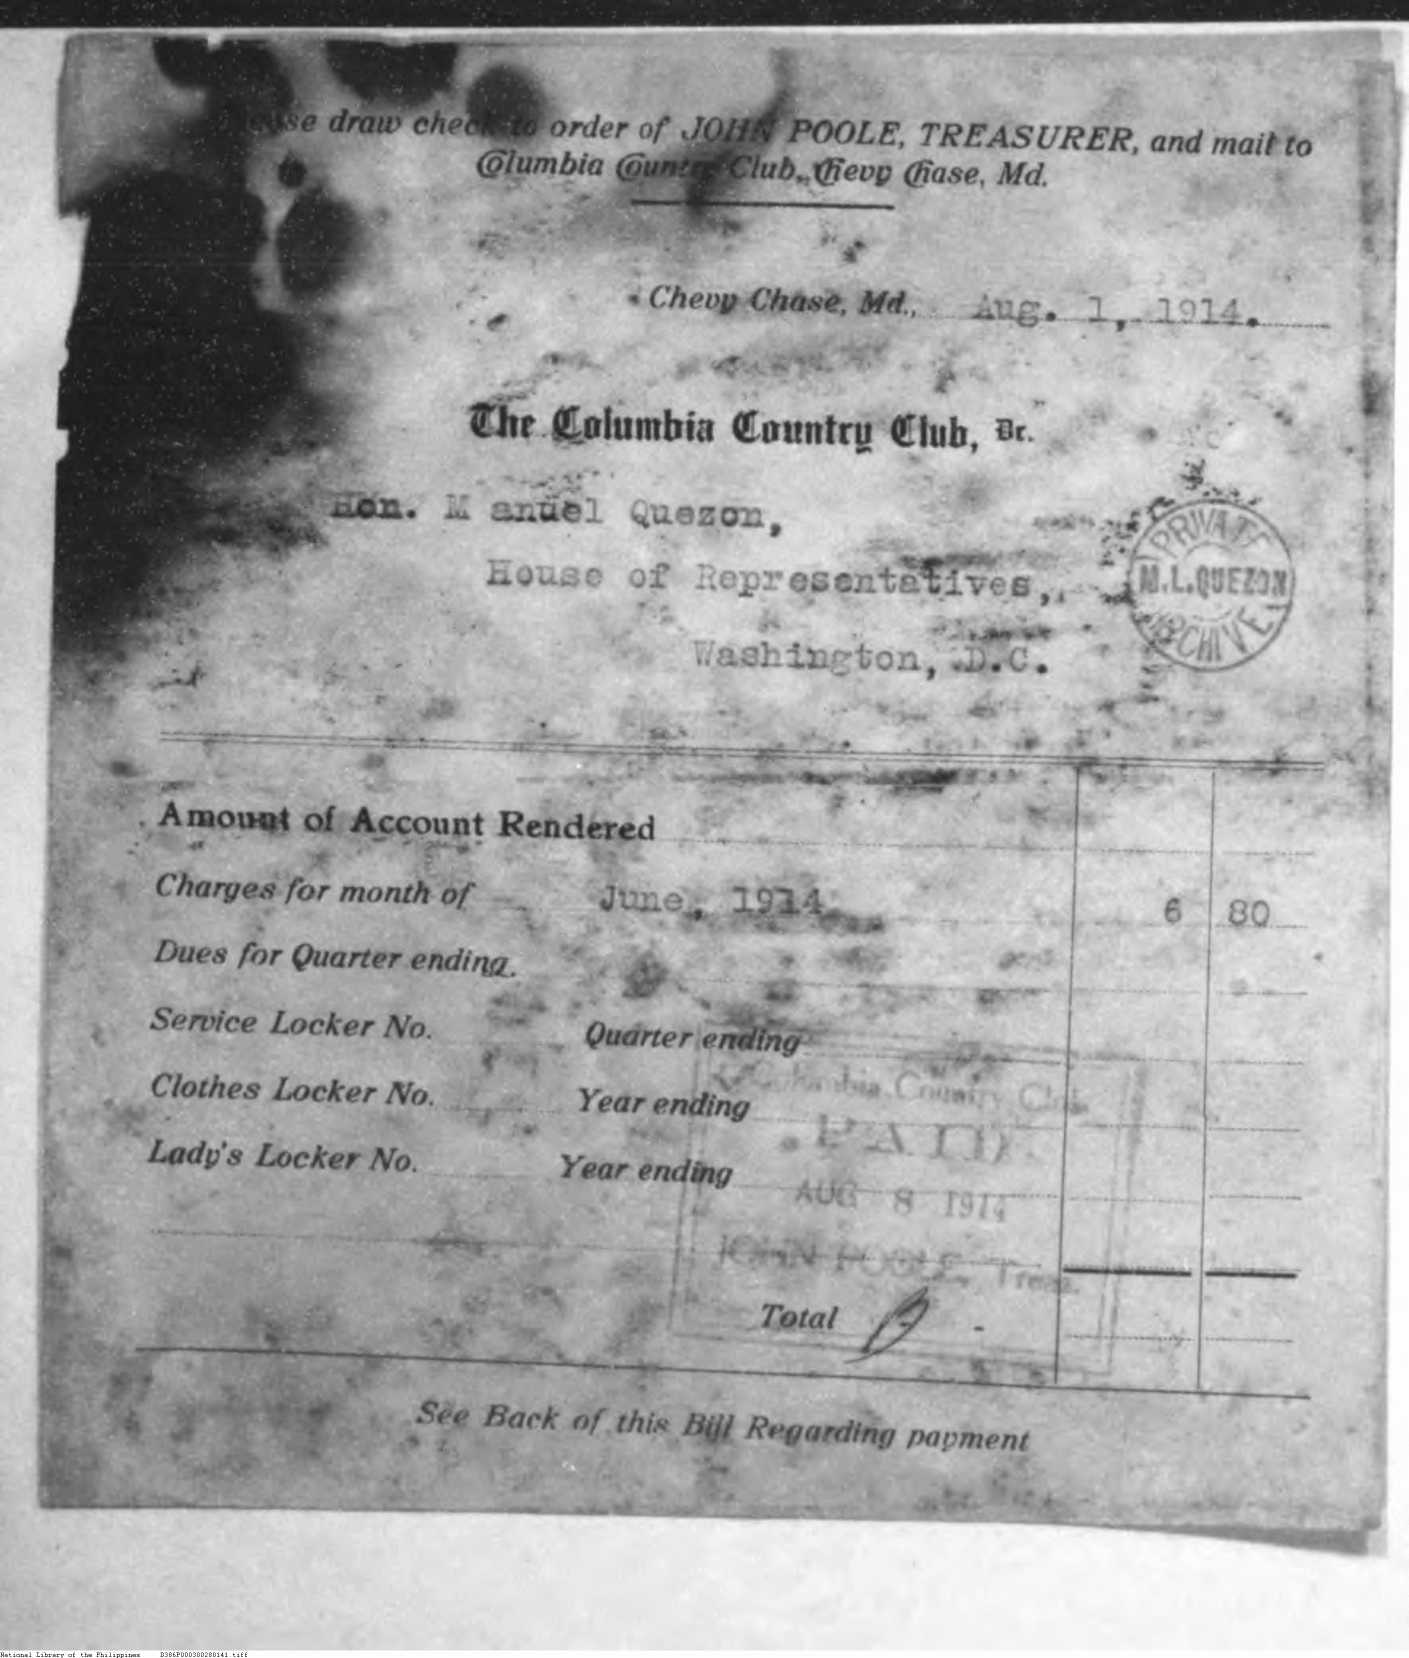 Please draw check to order of JOHN POOLE, TREASURER, and mail to
Columbia Country Club, Chevy Chase, Md.
Chevy Chase, Md., Aug. 1, 1914.
The Columbia Country Club, Dr.
Hon. M anuel Quezon,
House of Representatives,
Washington, D.C.
PRIVATE
M.L.QUEZON
ARCHIVE
Amount of Account Rendered
Charges for month of June, 1914 6 80
Dues for Quarter ending.
Service Locker No. Quarter ending
Clothes Locker No. Year ending
Lady's Locker No. Year ending
Columbia Country Club
PAID
AUG 8 1914
JOHN POOLE, Treas.
Total
See Back of this Bill Regarding payment
National Library of the Philippines B386P000300280141.tiff